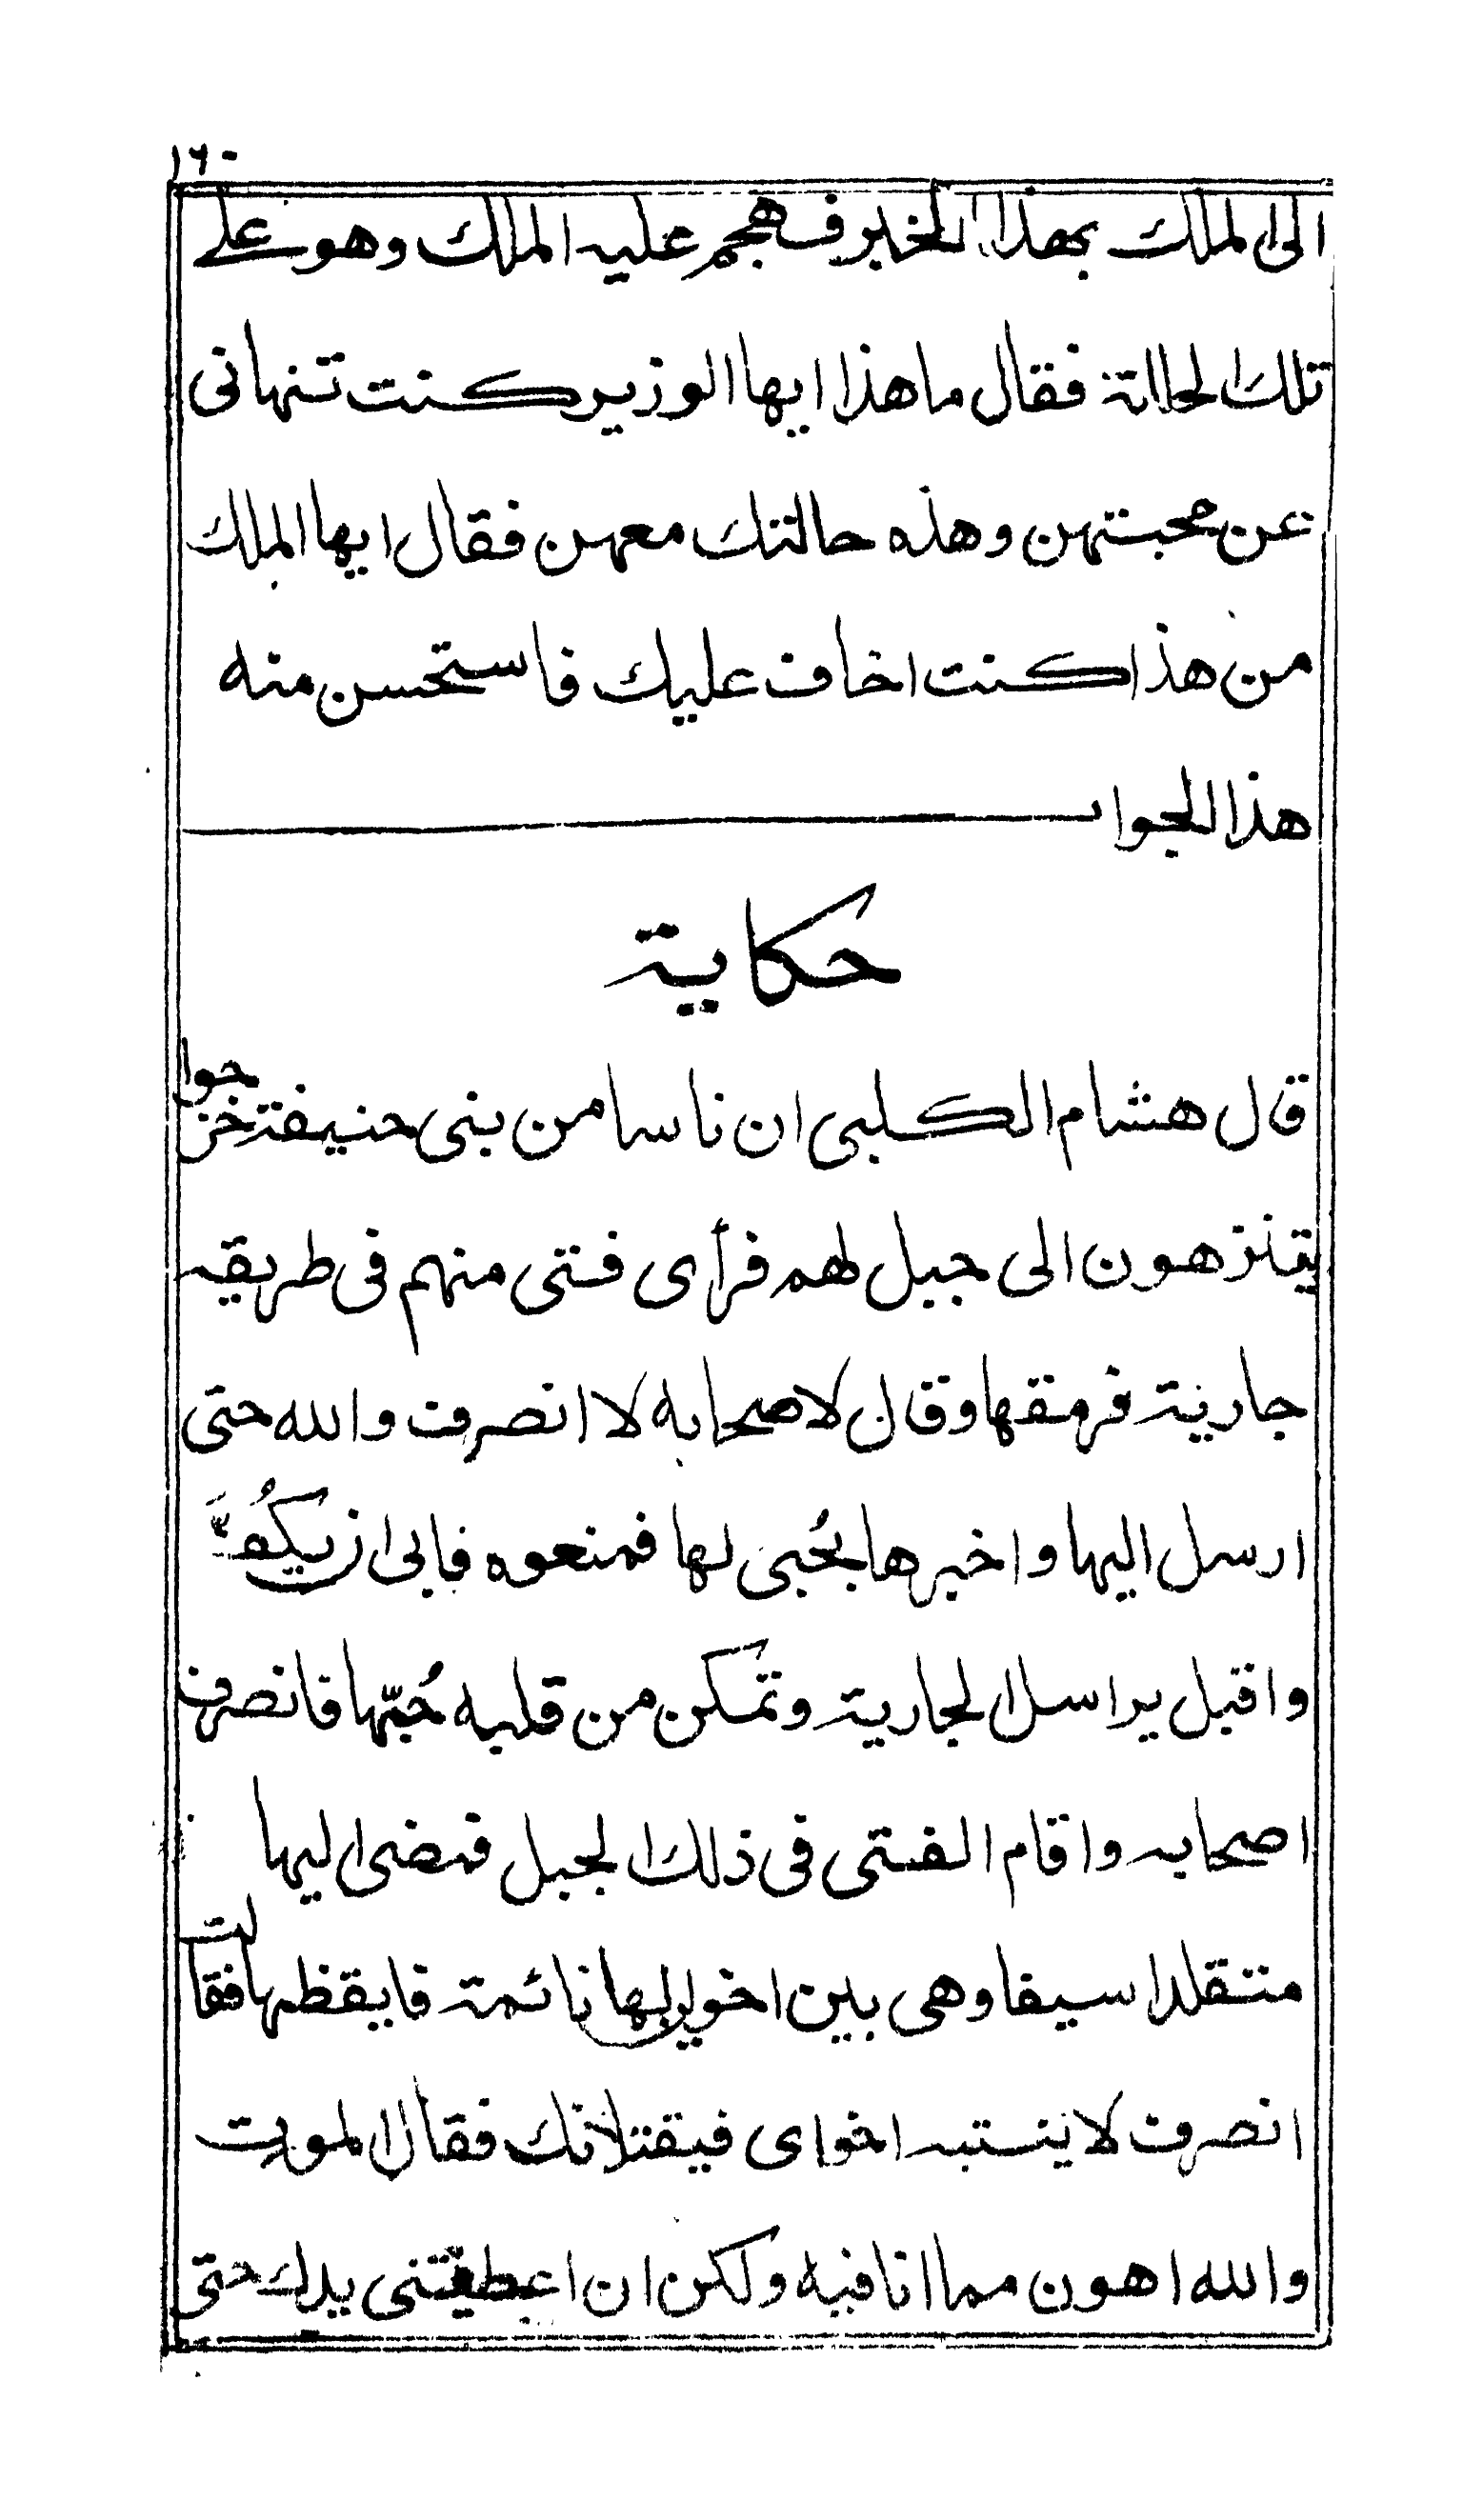 ١٦٠
الى الملك بهذا الخبر فهجم عليه الملك وهو على
تلك الحالة فقال ما هذا ايها الوزير كنت تنهانى
عن محبتهن وهذه حالتك معهن فقال ايها الملك
من هذا كنت اخاف عليك فاستحسن منه
هذا الجواب
حكاية
قال هشام الكلبى ان ناسا من بنى حنيفة خرجوا
يتنزهون الى جبل لهم فرأى فتى منهم فى طريقه
جارية فرمقها وقال لاصحابه لا انصرف والله حتى
ارسل اليها واخبرها بحُبى لها فمنعوه فابى ان يكُفَّ
واقبل يراسل الجارية وتمكن من قلبه حُبّها فانصرف
اصحابه واقام الفتى فى ذلك الجبل فمضى اليها
متقلدا سيفا وهى بين اخوين لها نائمة فايقظها فقالت
انصرف لا ينتبه اخواى فيقتلانك فقال الموت
والله اهون مما انا فيه ولكن ان اعطيتنى يدك حتى